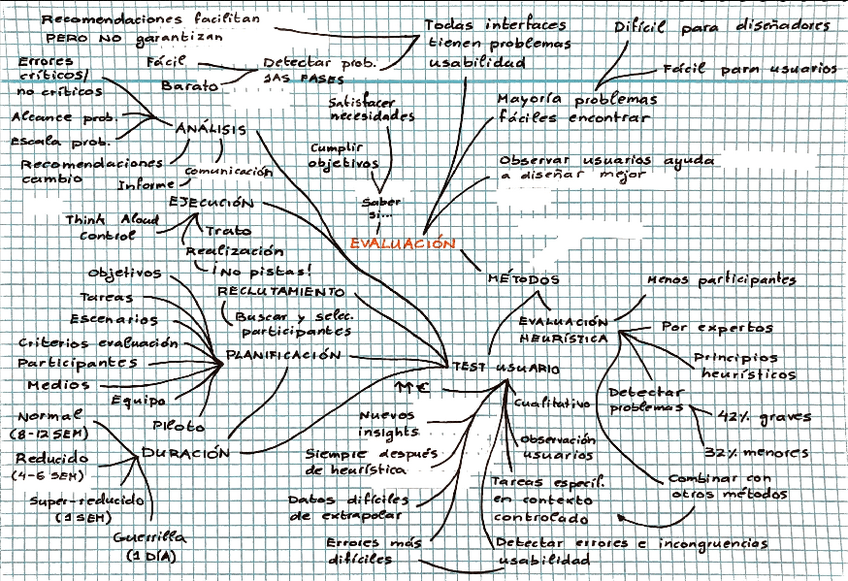 Recomendaciones facilitan
PERO NO garantizan
Todas interfaces
tienen problemas
usabilidad
Difícil para diseñadores
Fácil para usuarios
Errores
críticos/
no críticos
Fácil
Barato
Detectar prob.
1AS FASES
Mayoría problemas
fáciles encontrar
Satisfacer
necesidades
Alcance prob.
Escala prob.
ANÁLISIS
Cumplir
objetivos
Observar usuarios ayuda
a diseñar mejor
Recomendaciones
cambio
Informe
comunicación
Saber
si...
EJECUCIÓN
Think Aloud
Control
Trato
Realización
¡No pistas!
EVALUACIÓN
MÉTODOS
Objetivos
Tareas
Escenarios
Criterios evaluación
Participantes
Medios
Equipo
Piloto
RECLUTAMIENTO
Buscar y selec.
participantes
PLANIFICACIÓN
Menos participantes
EVALUACIÓN
HEURÍSTICA
Por expertos
Principios
heurísticos
Detectar
problemas
42% graves
32% menores
Combinar con
otros métodos
TEST USUARIO
M€
Cualitativo
Nuevos
insights
Observación
usuarios
Siempre después
de heurística
Tareas específ.
en contexto
controlado
Datos difíciles
de extrapolar
Errores más
difíciles
Detectar errores e incongruencias
usabilidad
Normal
(8-12 SEM)
Reducido
(4-6 SEM)
Super-reducido
(1 SEM)
Guerrilla
(1 DÍA)
DURACIÓN